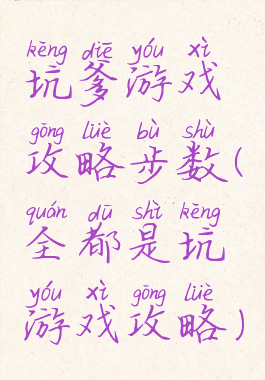 kēng diē yóu xì
坑爹游戏
gōng lüè bù shù
攻略步数(
quán dū shì kēng
全都是坑
yóu xì gōng lüè
游戏攻略)